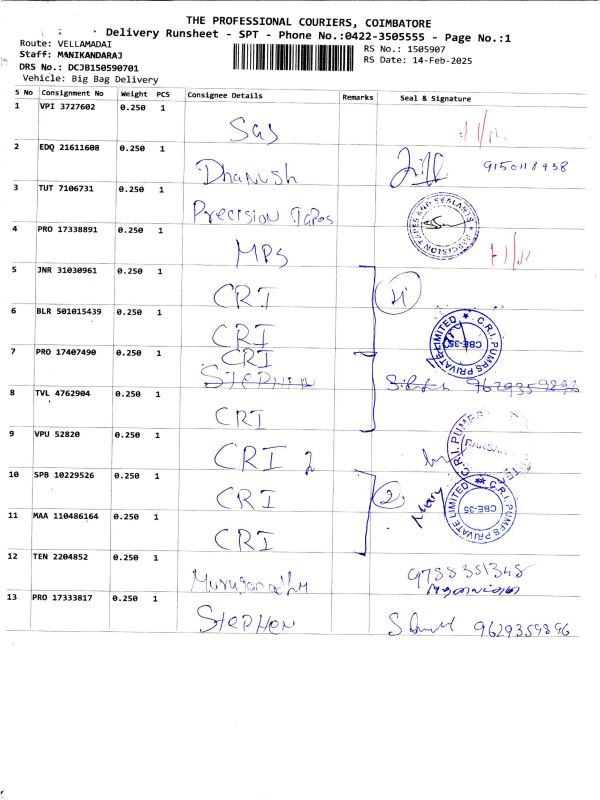 THE PROFESSIONAL COURIERS, COIMBATORE
Delivery Runsheet - SPT - Phone No.:0422-3505555 - Page No.:1
Route: VELLAMADAI
RS No.: 1505907
Staff: MANIKANDARAJ
RS Date: 14-Feb-2025
DRS No.: DCJB150590701
Vehicle: Big Bag Delivery
S No Consignment No Weight PCS Consignee Details Remarks Seal & Signature
1 VPI 3727602 0.250 1 SGS
2 EDQ 21611608 0.250 1 Dhanush 9150118938
3 TUT 7106731 0.250 1 Precision Tapes
PRECISION TAPES AND SEALANTS
4 PRO 17338891 0.250 1 MPS
5 JNR 31030961 0.250 1 CRI 4
6 BLR 501015439 0.250 1 CRI
C.R.I. PUMPS PRIVATE LIMITED
CBE-35
7 PRO 17407490 0.250 1 CRI
STEPHEN 9629359896
8 TVL 4762904 0.250 1 CRI
9 VPU 52820 0.250 1 CRI 2
C.R.I. PUMPS
10 SPB 10229526 0.250 1 CRI 2
C.R.I. PUMPS PRIVATE LIMITED
CBE-35
11 MAA 110486164 0.250 1 CRI
12 TEN 2204852 0.250 1 9788351348
13 PRO 17333817 0.250 1 STEPHEN 9629359896